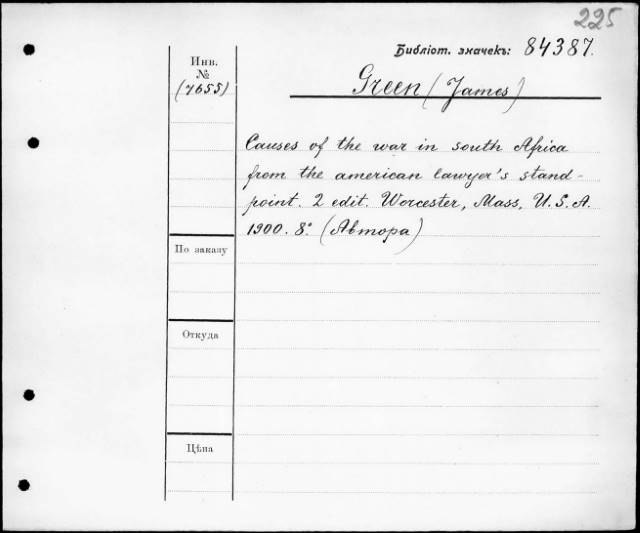 225
Библіот. значекъ: 84387.
Инв.
№
(7655)
Green (James)
Causes of the war in south Africa
from the american lawyer's stand-
point. 2 edit. Worcester, Mass, U.S.A.
1900. 8° (Автора)
По заказу
Откуда
Цѣна